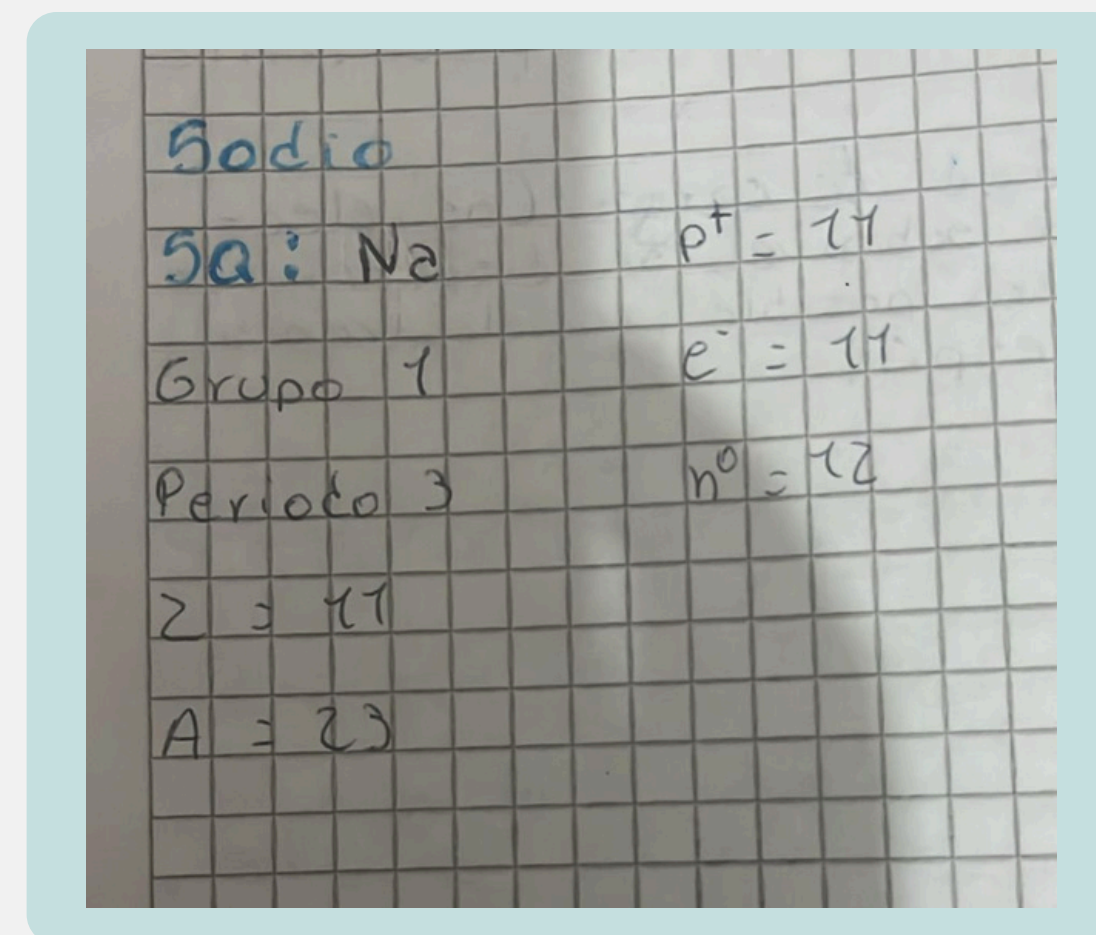 Sodio
SQ: Na
Grupo 1
Periodo 3
Z = 11
A = 23
p+ = 11
e- = 11
n0 = 12